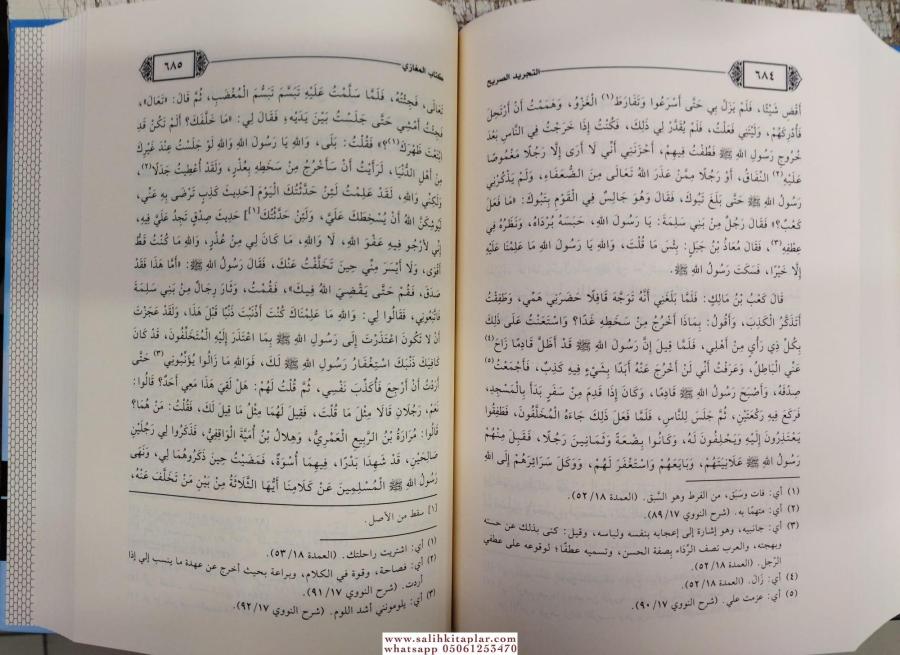 ٦٨٤
التجريد الصريح
أَقْضِ شَيْئًا، فَلَمْ يَزَلْ بِي حَتَّى أَسْرَعُوا وَتَفَارَطَ(١) الْغَزْوُ، وَهَمَمْتُ أَنْ أَرْتَحِلَ
فَأُدْرِكَهُمْ، وَلَيْتَنِي فَعَلْتُ، فَلَمْ يُقَدَّرْ لِي ذَلِكَ، فَكُنْتُ إِذَا خَرَجْتُ فِي النَّاسِ بَعْدَ
خُرُوجِ رَسُولِ اللهِ ﷺ فَطُفْتُ فِيهِمْ، أَحْزَنَنِي أَنِّي لَا أَرَى إِلَّا رَجُلًا مَغْمُوصًا
عَلَيْهِ(٢) النِّفَاقُ، أَوْ رَجُلًا مِمَّنْ عَذَرَ اللهُ تَعَالَى مِنَ الضُّعَفَاءِ، وَلَمْ يَذْكُرْنِي
رَسُولُ اللهِ ﷺ حَتَّى بَلَغَ تَبُوكَ، فَقَالَ وَهُوَ جَالِسٌ فِي الْقَوْمِ بِتَبُوكَ: «مَا فَعَلَ
كَعْبٌ؟» فَقَالَ رَجُلٌ مِنْ بَنِي سَلِمَةَ: يَا رَسُولَ اللهِ، حَبَسَهُ بُرْدَاهُ، وَنَظَرُهُ فِي
عِطْفَيْهِ(٣)، فَقَالَ مُعَاذُ بْنُ جَبَلٍ: بِئْسَ مَا قُلْتَ، وَاللهِ يَا رَسُولَ اللهِ مَا عَلِمْنَا عَلَيْهِ
إِلَّا خَيْرًا، فَسَكَتَ رَسُولُ اللهِ ﷺ.
قَالَ كَعْبُ بْنُ مَالِكٍ: فَلَمَّا بَلَغَنِي أَنَّهُ تَوَجَّهَ قَافِلًا حَضَرَنِي هَمِّي، وَطَفِقْتُ
أَتَذَكَّرُ الْكَذِبَ، وَأَقُولُ: بِمَاذَا أَخْرُجُ مِنْ سَخَطِهِ غَدًا؟ وَاسْتَعَنْتُ عَلَى ذَلِكَ
بِكُلِّ ذِي رَأْيٍ مِنْ أَهْلِي، فَلَمَّا قِيلَ إِنَّ رَسُولَ اللهِ ﷺ قَدْ أَظَلَّ قَادِمًا زَاحَ(٤)
عَنِّي الْبَاطِلُ، وَعَرَفْتُ أَنِّي لَنْ أَخْرُجَ مِنْهُ أَبَدًا بِشَيْءٍ فِيهِ كَذِبٌ، فَأَجْمَعْتُ(٥)
صِدْقَهُ، وَأَصْبَحَ رَسُولُ اللهِ ﷺ قَادِمًا، وَكَانَ إِذَا قَدِمَ مِنْ سَفَرٍ بَدَأَ بِالْمَسْجِدِ،
فَرَكَعَ فِيهِ رَكْعَتَيْنِ، ثُمَّ جَلَسَ لِلنَّاسِ، فَلَمَّا فَعَلَ ذَلِكَ جَاءَهُ الْمُخَلَّفُونَ، فَطَفِقُوا
يَعْتَذِرُونَ إِلَيْهِ وَيَحْلِفُونَ لَهُ، وَكَانُوا بِضْعَةً وَثَمَانِينَ رَجُلًا، فَقَبِلَ مِنْهُمْ
رَسُولُ اللهِ ﷺ عَلَانِيَتَهُمْ، وَبَايَعَهُمْ وَاسْتَغْفَرَ لَهُمْ، وَوَكَلَ سَرَائِرَهُمْ إِلَى اللهِ
(١) أي: فات وسَبَق، من الفرط وهو السَّبق. (العمدة ٥٢/١٨).
(٢) أي: متهمًا به. (شرح النووي ٨٩/١٧).
(٣) أي: جانبيه، وهو إشارة إلى إعجابه بنفسه ولباسه، وقيل: كنى بذلك عن حسنه
وبهجته، والعرب تصف الرِّداء بصفة الحسن، وتسميه عطفًا؛ لوقوعه على عطفي
الرّجل. (العمدة ٥٢/١٨).
(٤) أي: زَال. (العمدة ٥٢/١٨).
(٥) أي: عزمت علي. (شرح النووي ٩٠/١٧).
كتاب المغازي
٦٨٥
تَعَالَى، فَجِئْتُهُ، فَلَمَّا سَلَّمْتُ عَلَيْهِ تَبَسَّمَ تَبَسُّمَ الْمُغْضَبِ، ثُمَّ قَالَ: «تَعَالَ»،
فَجِئْتُ أَمْشِي حَتَّى جَلَسْتُ بَيْنَ يَدَيْهِ، فَقَالَ لِي: «مَا خَلَّفَكَ؟ أَلَمْ تَكُنْ قَدِ
ابْتَعْتَ ظَهْرَكَ(١)؟» فَقُلْتُ: بَلَى، وَاللهِ يَا رَسُولَ اللهِ وَاللهِ لَوْ جَلَسْتُ عِنْدَ غَيْرِكَ
مِنْ أَهْلِ الدُّنْيَا، لَرَأَيْتُ أَنْ سَأَخْرُجُ مِنْ سَخَطِهِ بِعُذْرٍ، وَلَقَدْ أُعْطِيتُ جَدَلًا(٢)،
وَلَكِنِّي وَاللهِ، لَقَدْ عَلِمْتُ لَئِنْ حَدَّثْتُكَ الْيَوْمَ [حَدِيثَ كَذِبٍ تَرْضَى بِهِ عَنِّي،
لَيُوشِكَنَّ اللهُ أَنْ يُسْخِطَكَ عَلَيَّ، وَلَئِنْ حَدَّثْتُكَ](١) حَدِيثَ صِدْقٍ تَجِدُ عَلَيَّ فِيهِ،
إِنِّي لَأَرْجُو فِيهِ عَفْوَ اللهِ، لَا وَاللهِ، مَا كَانَ لِي مِنْ عُذْرٍ، وَاللهِ مَا كُنْتُ قَطُّ
أَقْوَى، وَلَا أَيْسَرَ مِنِّي حِينَ تَخَلَّفْتُ عَنْكَ، فَقَالَ رَسُولُ اللهِ ﷺ: «أَمَّا هَذَا فَقَدْ
صَدَقَ، فَقُمْ حَتَّى يَقْضِيَ اللهُ فِيكَ»، فَقُمْتُ، وَثَارَ رِجَالٌ مِنْ بَنِي سَلِمَةَ
فَاتَّبَعُونِي، فَقَالُوا لِي: وَاللهِ مَا عَلِمْنَاكَ كُنْتَ أَذْنَبْتَ ذَنْبًا قَبْلَ هَذَا، وَلَقَدْ عَجَزْتَ
أَنْ لَا تَكُونَ اعْتَذَرْتَ إِلَى رَسُولِ اللهِ ﷺ بِمَا اعْتَذَرَ إِلَيْهِ الْمُتَخَلِّفُونَ، قَدْ كَانَ
كَافِيَكَ ذَنْبَكَ اسْتِغْفَارُ رَسُولِ اللهِ ﷺ لَكَ، فَوَاللهِ مَا زَالُوا يُؤَنِّبُونِي(٣) حَتَّى
أَرَدْتُ أَنْ أَرْجِعَ فَأُكَذِّبَ نَفْسِي، ثُمَّ قُلْتُ لَهُمْ: هَلْ لَقِيَ هَذَا مَعِي أَحَدٌ؟ قَالُوا:
نَعَمْ، رَجُلَانِ قَالَا مِثْلَ مَا قُلْتَ، فَقِيلَ لَهُمَا مِثْلُ مَا قِيلَ لَكَ، فَقُلْتُ: مَنْ هُمَا؟
قَالُوا: مُرَارَةُ بْنُ الرَّبِيعِ الْعَمْرِيُّ، وَهِلَالُ بْنُ أُمَيَّةَ الْوَاقِفِيُّ، فَذَكَرُوا لِي رَجُلَيْنِ
صَالِحَيْنِ، قَدْ شَهِدَا بَدْرًا، فِيهِمَا أُسْوَةٌ، فَمَضَيْتُ حِينَ ذَكَرُوهُمَا لِي، وَنَهَى
رَسُولُ اللهِ ﷺ الْمُسْلِمِينَ عَنْ كَلَامِنَا أَيُّهَا الثَّلَاثَةُ مِنْ بَيْنِ مَنْ تَخَلَّفَ عَنْهُ،
[١] سقط من الأصل.
(١) أي: اشتريت راحلتك. (العمدة ٥٣/١٨).
(٢) أي: فصاحة، وقوة في الكلام، وبراعة بحيث أخرج عن عهدة ما ينسب إلي إذا
أردت. (شرح النووي ٩١/١٧).
(٣) أي: يلومونني أشد اللوم. (شرح النووي ٩٢/١٧).
www.salihkitaplar.com
whatsapp 05061253470